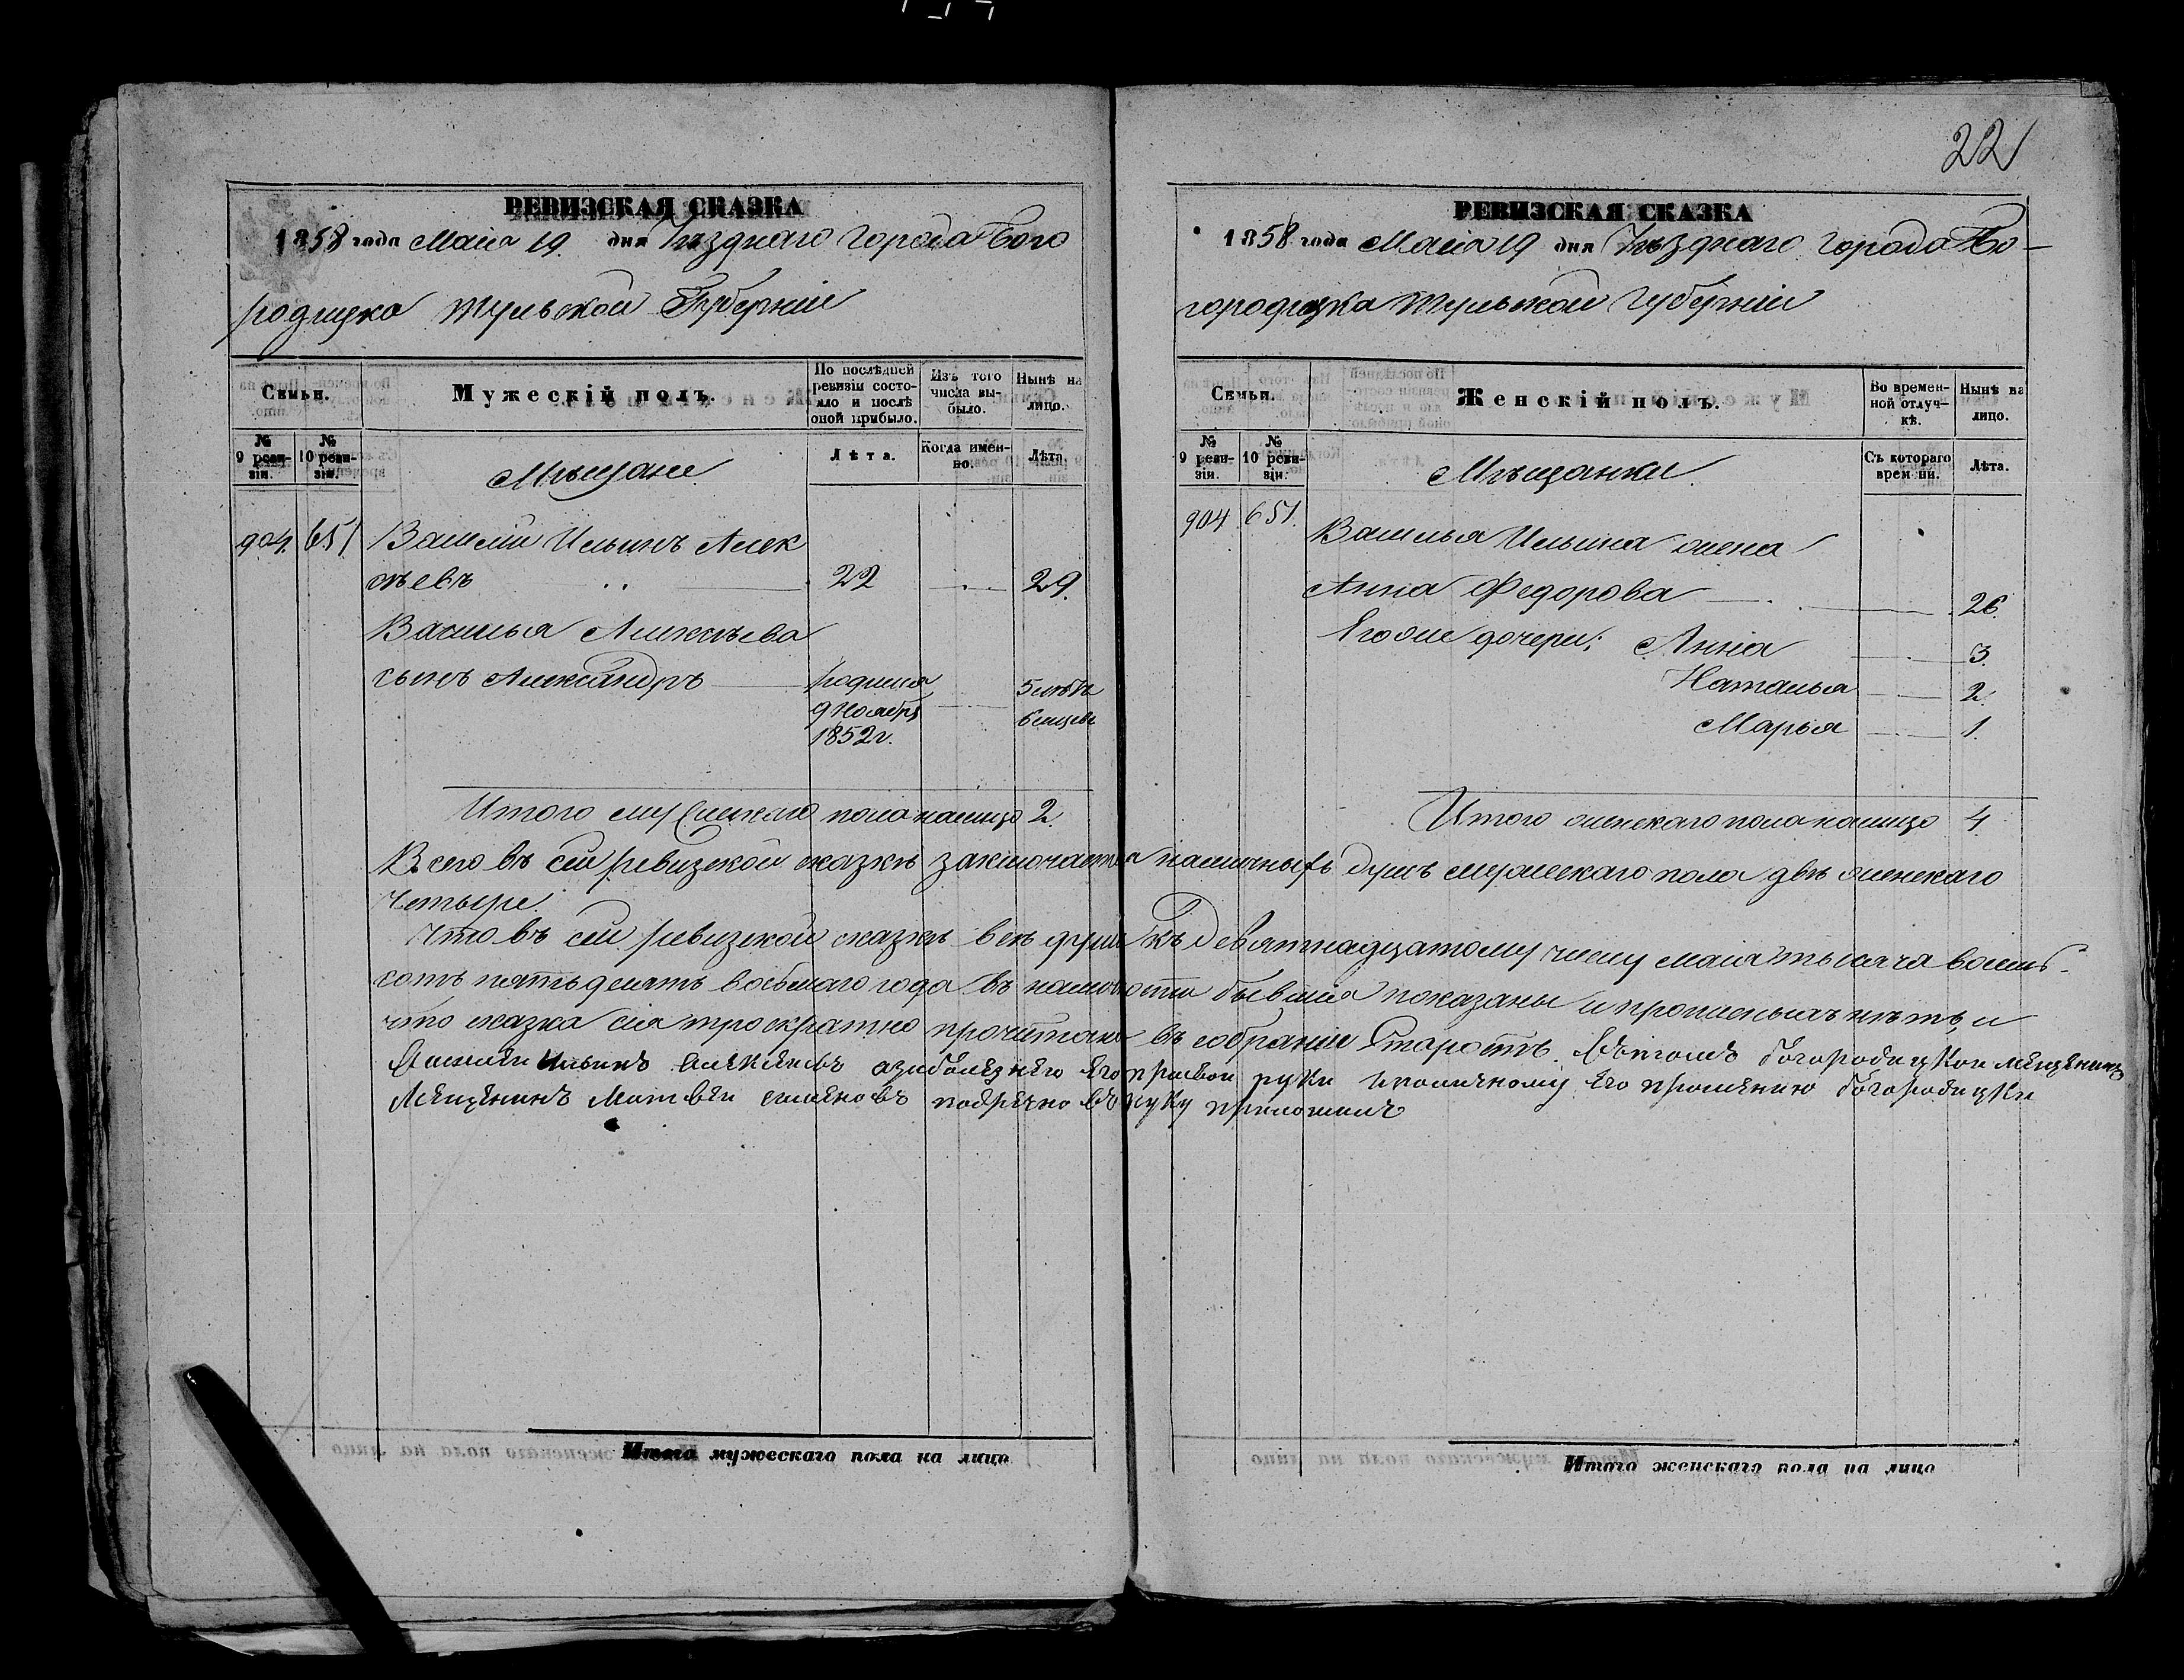 22
РЕВИЗСКАЯ СКАЗКА
1858 года Маія 19. дня Уѣзднаго Города Бого
родицка Тульской Губерніи
Семьи.
Мужескій полъ.
По послѣдней ревизіи состояло и послѣ оной прибыло.
Изъ того числа выбыло.
Нынѣ на лицо.
№ 9 ревизіи.
№ 10 ревизіи.
Мѣщане
Лѣта.
Когда именно.
Лѣта.
904. 651 Василій Ильинъ Алек
сѣевъ 22 29.
Василья Алексѣева
сынъ Александръ родился 5 лѣтъ
9 Ноября 6 мѣсяцевъ
1852 г.
Итого мужескаго пола налицо 2.
РЕВИЗСКАЯ СКАЗКА
1858 года Маія 19 дня Уѣзднаго Города Бо-
городицка Тульской Губерніи
Семьи.
Женскій полъ.
Во временной отлучкѣ.
Нынѣ на лицо.
№ 9 ревизіи.
№ 10 ревизіи.
Мѣщанки.
Съ котораго времени.
Лѣта.
904 651. Василья Ильина жена
Анна Федорова 26.
Его же дочери: Анна 3.
Наталья 2.
Марья 1.
Итого женскаго пола налицо 4.
Всего въ сей ревизской сказкѣ заключается наличныхъ душъ мужескаго пола двѣ женскаго
четыре.
Что въ сей ревизской сказкѣ всѣ души къ девятнадцатому числу маія тысяча восемь-
сотъ пятьдесятъ восьмаго года въ наличности бывшія показаны и прописныхъ нѣтъ, и
что сказка сія троекратно прочитана въ собраніи Старостъ. Въ томъ богородицкои мещенинъ
Василеи Ильинъ Алексеевъ азаболезнею его правои руки иполичному его прошению богородицки
Мещенинъ Матвеи семеновъ руку приложилъ
Итого мужескаго пола на лицо
Итого женскаго пола на лицо